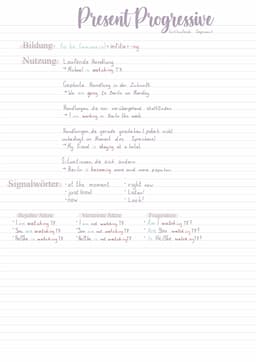 Present Progressive
Bildung: to be (am/are/is)+Infinitiv+ing
Nutzung: Laufende Handlung
→ Michael is watching TV
Geplante Handlung in der Zukunft
→ We are going to Berlin on Monday
Handlungen die nur vorübergehend stattfinden
→ I am working in Berlin this week
Handlungen, die gerade geschehen (jedoch nicht
unbedingt im Moment des Sprechens)
→ My friend is staying at a hotel
Situationen, die sich ändern
→ Berlin is becoming more and more popular
Signalwörter: · at the moment · right now
· just now · Listen!
· now · Look!
Bejahte Sätze Verneinte Sätze Fragesätze
· I am watching TV · I am not watching TV · Am I watching TV?
· You are watching TV · You are not watching TV · Are You watching TV?
· He/She is watching TV · He/She is not watching TV · Is He/She watching TV?